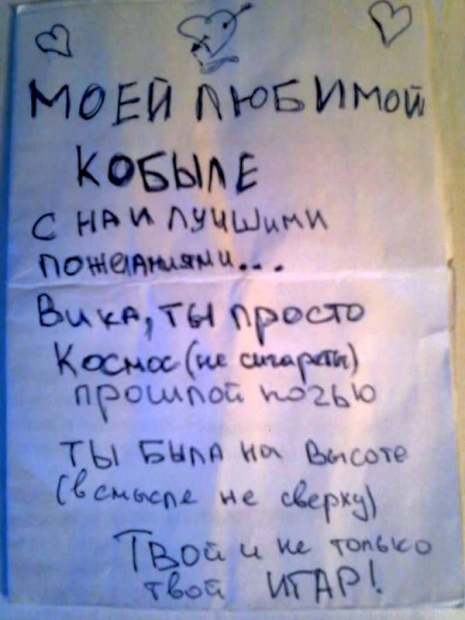 МОЕЙ ЛЮБИМОЙ
КОБЫЛЕ
С НАИЛУЧШИМИ
ПОЖЕЛАНИЯМИ...
Вика, ты просто
Космос (не сигареты)
прошлой ночью
ты была на высоте
(в смысле не сверху)
Твой и не только
твой ИГАР!